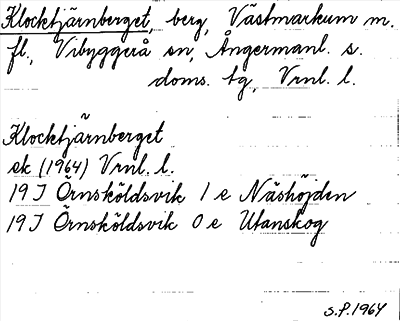 Klocktjärnberget, berg, Västmarkum m.
fl., Vibyggerå sn, Ångermanl. s.
doms. tg, Vrnl. l.
Klocktjärnberget
ek (1964) Vrnl. l.
19 I Örnsköldsvik 1 e Näshöjden
19 I Örnsköldsvik 0 e Utanskog
S.P. 1964